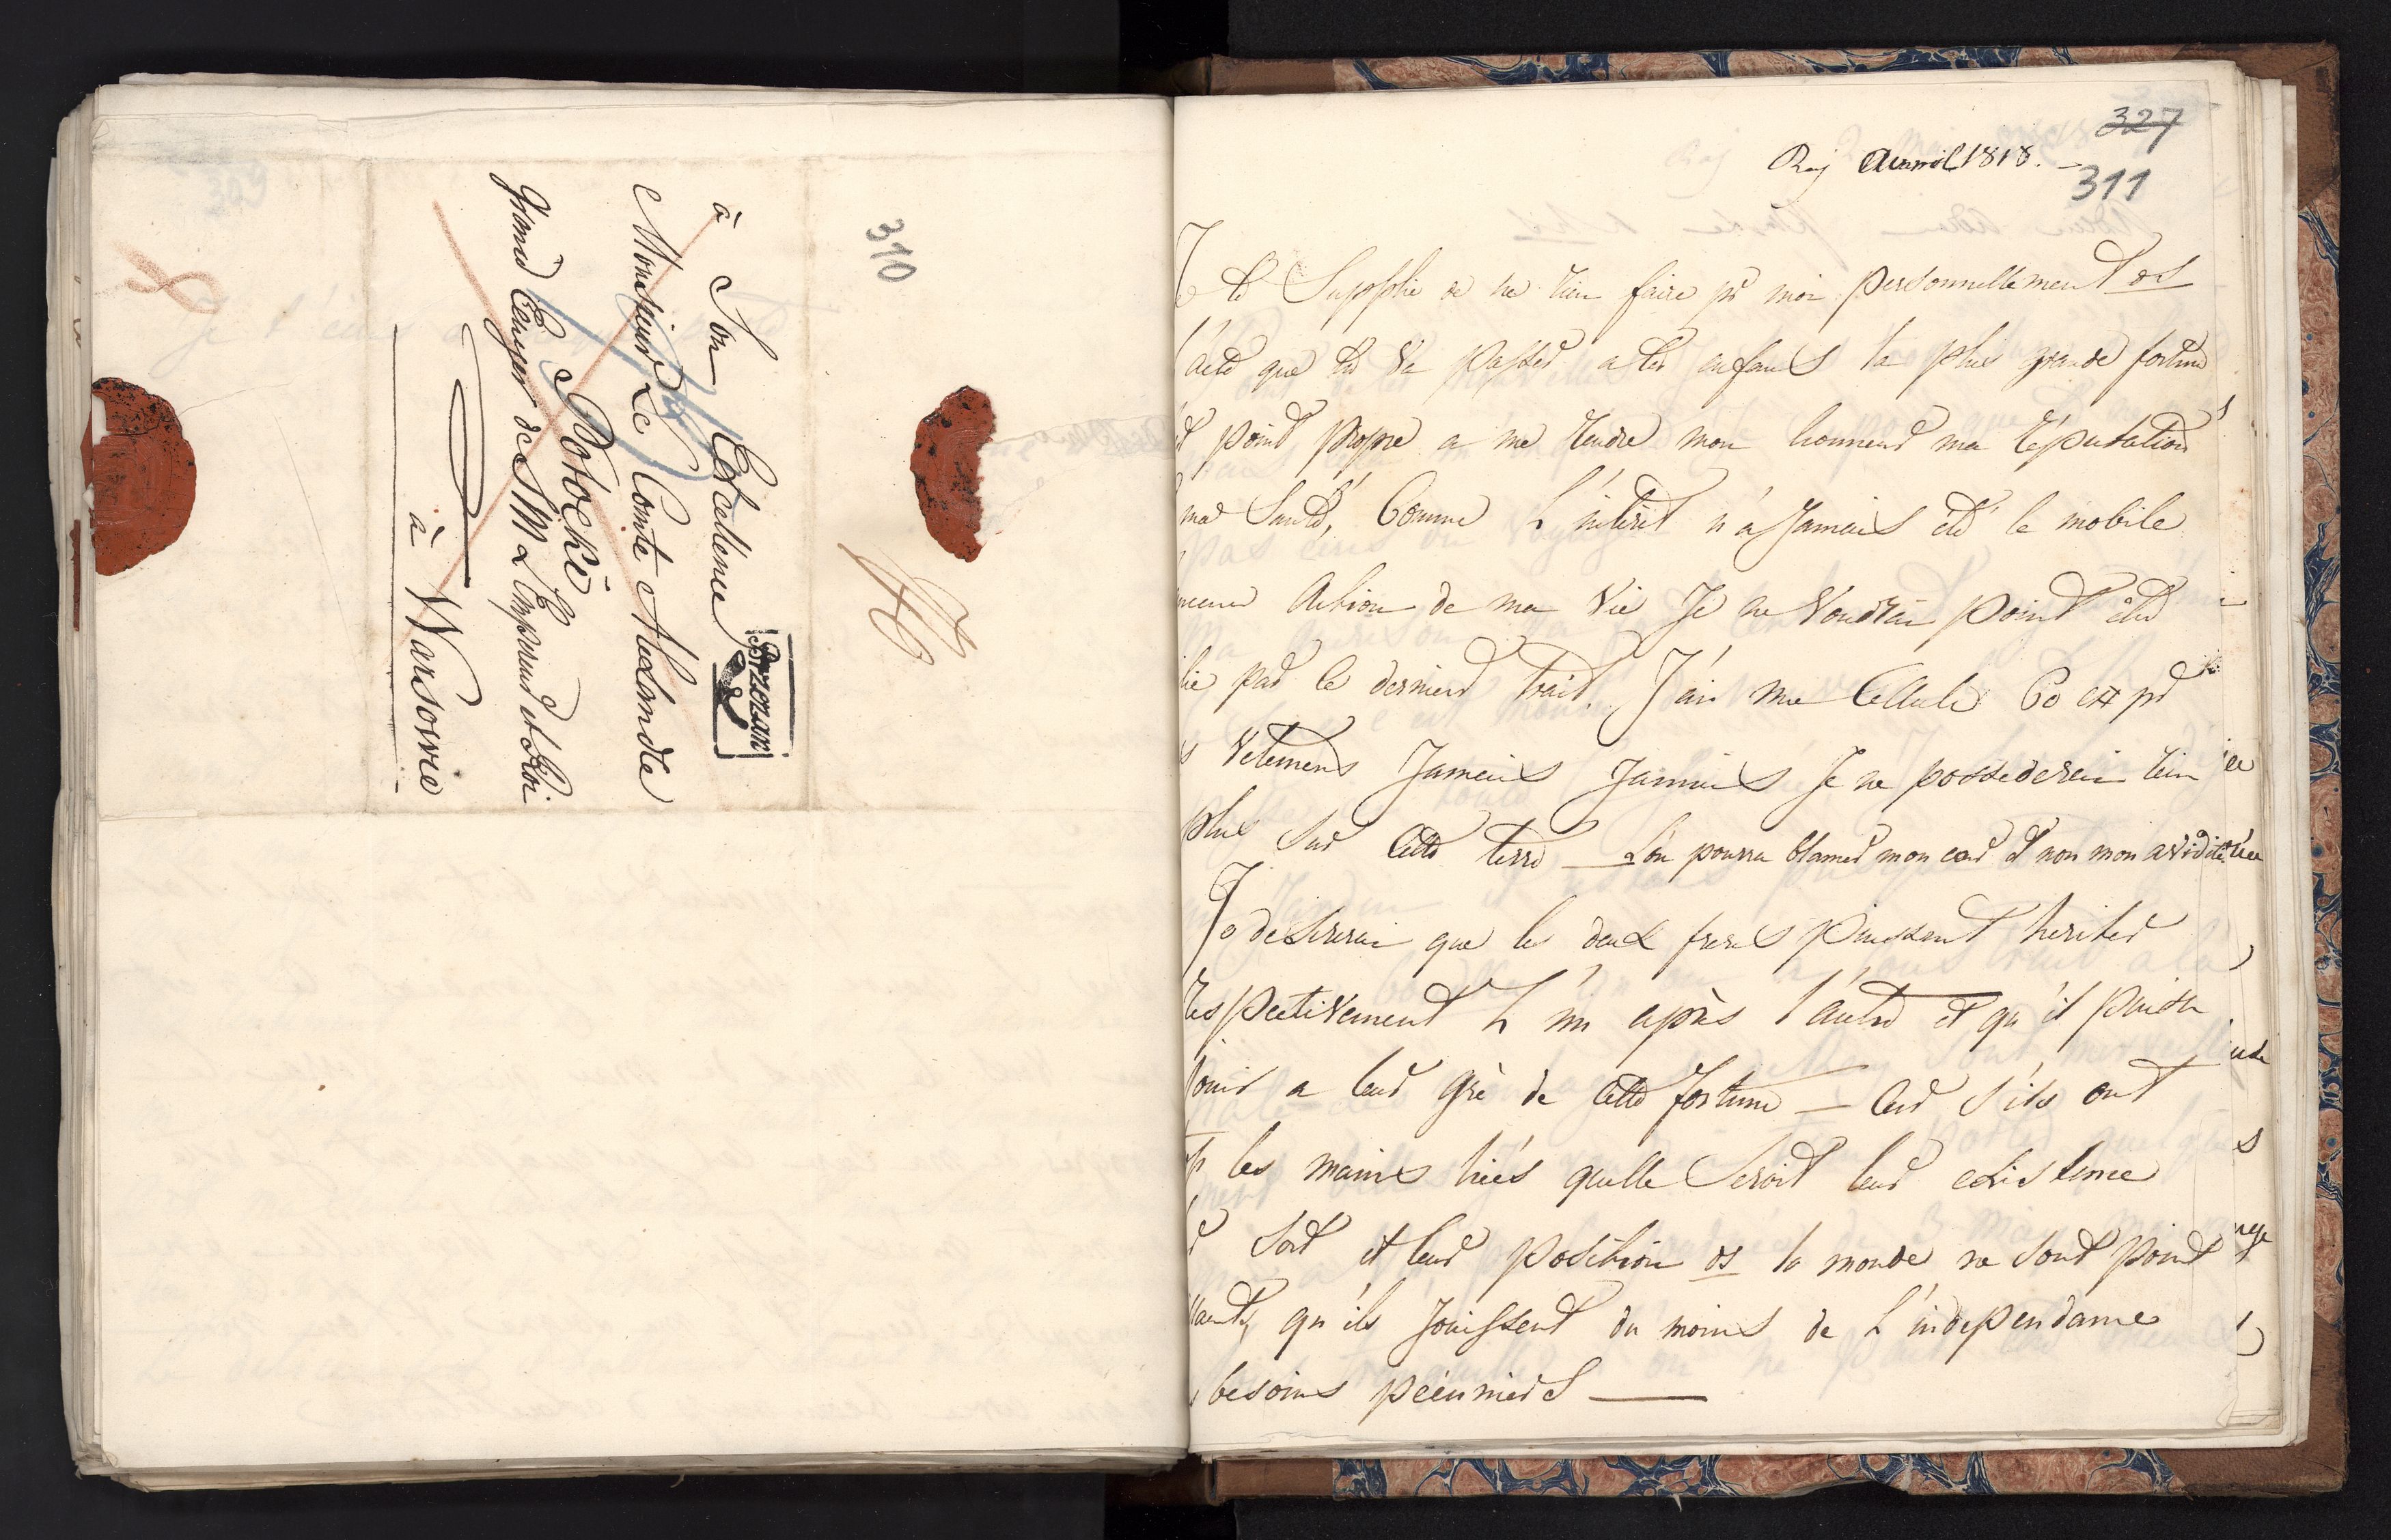 310
à Son Excellence
Monsieur Le Comte Alexandre
Potocki
grand Ecuyer de S M L'Empereur et Roi
à Warsovie
Brzezan
327
Raj Avril 1818. –
311
Je te Supplie de ne rien faire pr moi personnellement ds
l'acte que tu va passer a tes enfans la plus grande fortune
point propre a me rendre mon honneur ma réputation
ma Santé, Comme L'intérêt n'a Jamais été le mobile
action de ma vie Je ne voudrai point être
par ce dernier trait. J'ai ma Cellule 60 ## pr
vetemens Jamais Jamais Je ne possederai rien
plus Sur Cette terre — L'on pourra blamer mon cœur et non mon avidité
Je desirerai que les deux freres puissent heriter
respectivement L'un après l'autre et qu'il puisse
jouir a leur grè de Cette fortune — Car s'ils ont
les mains liées quelle Seroit leur existence
Sort et leur position ds le monde ne sont point
qu'ils Jouissent du moins de L'independance
besoins pécuniers —